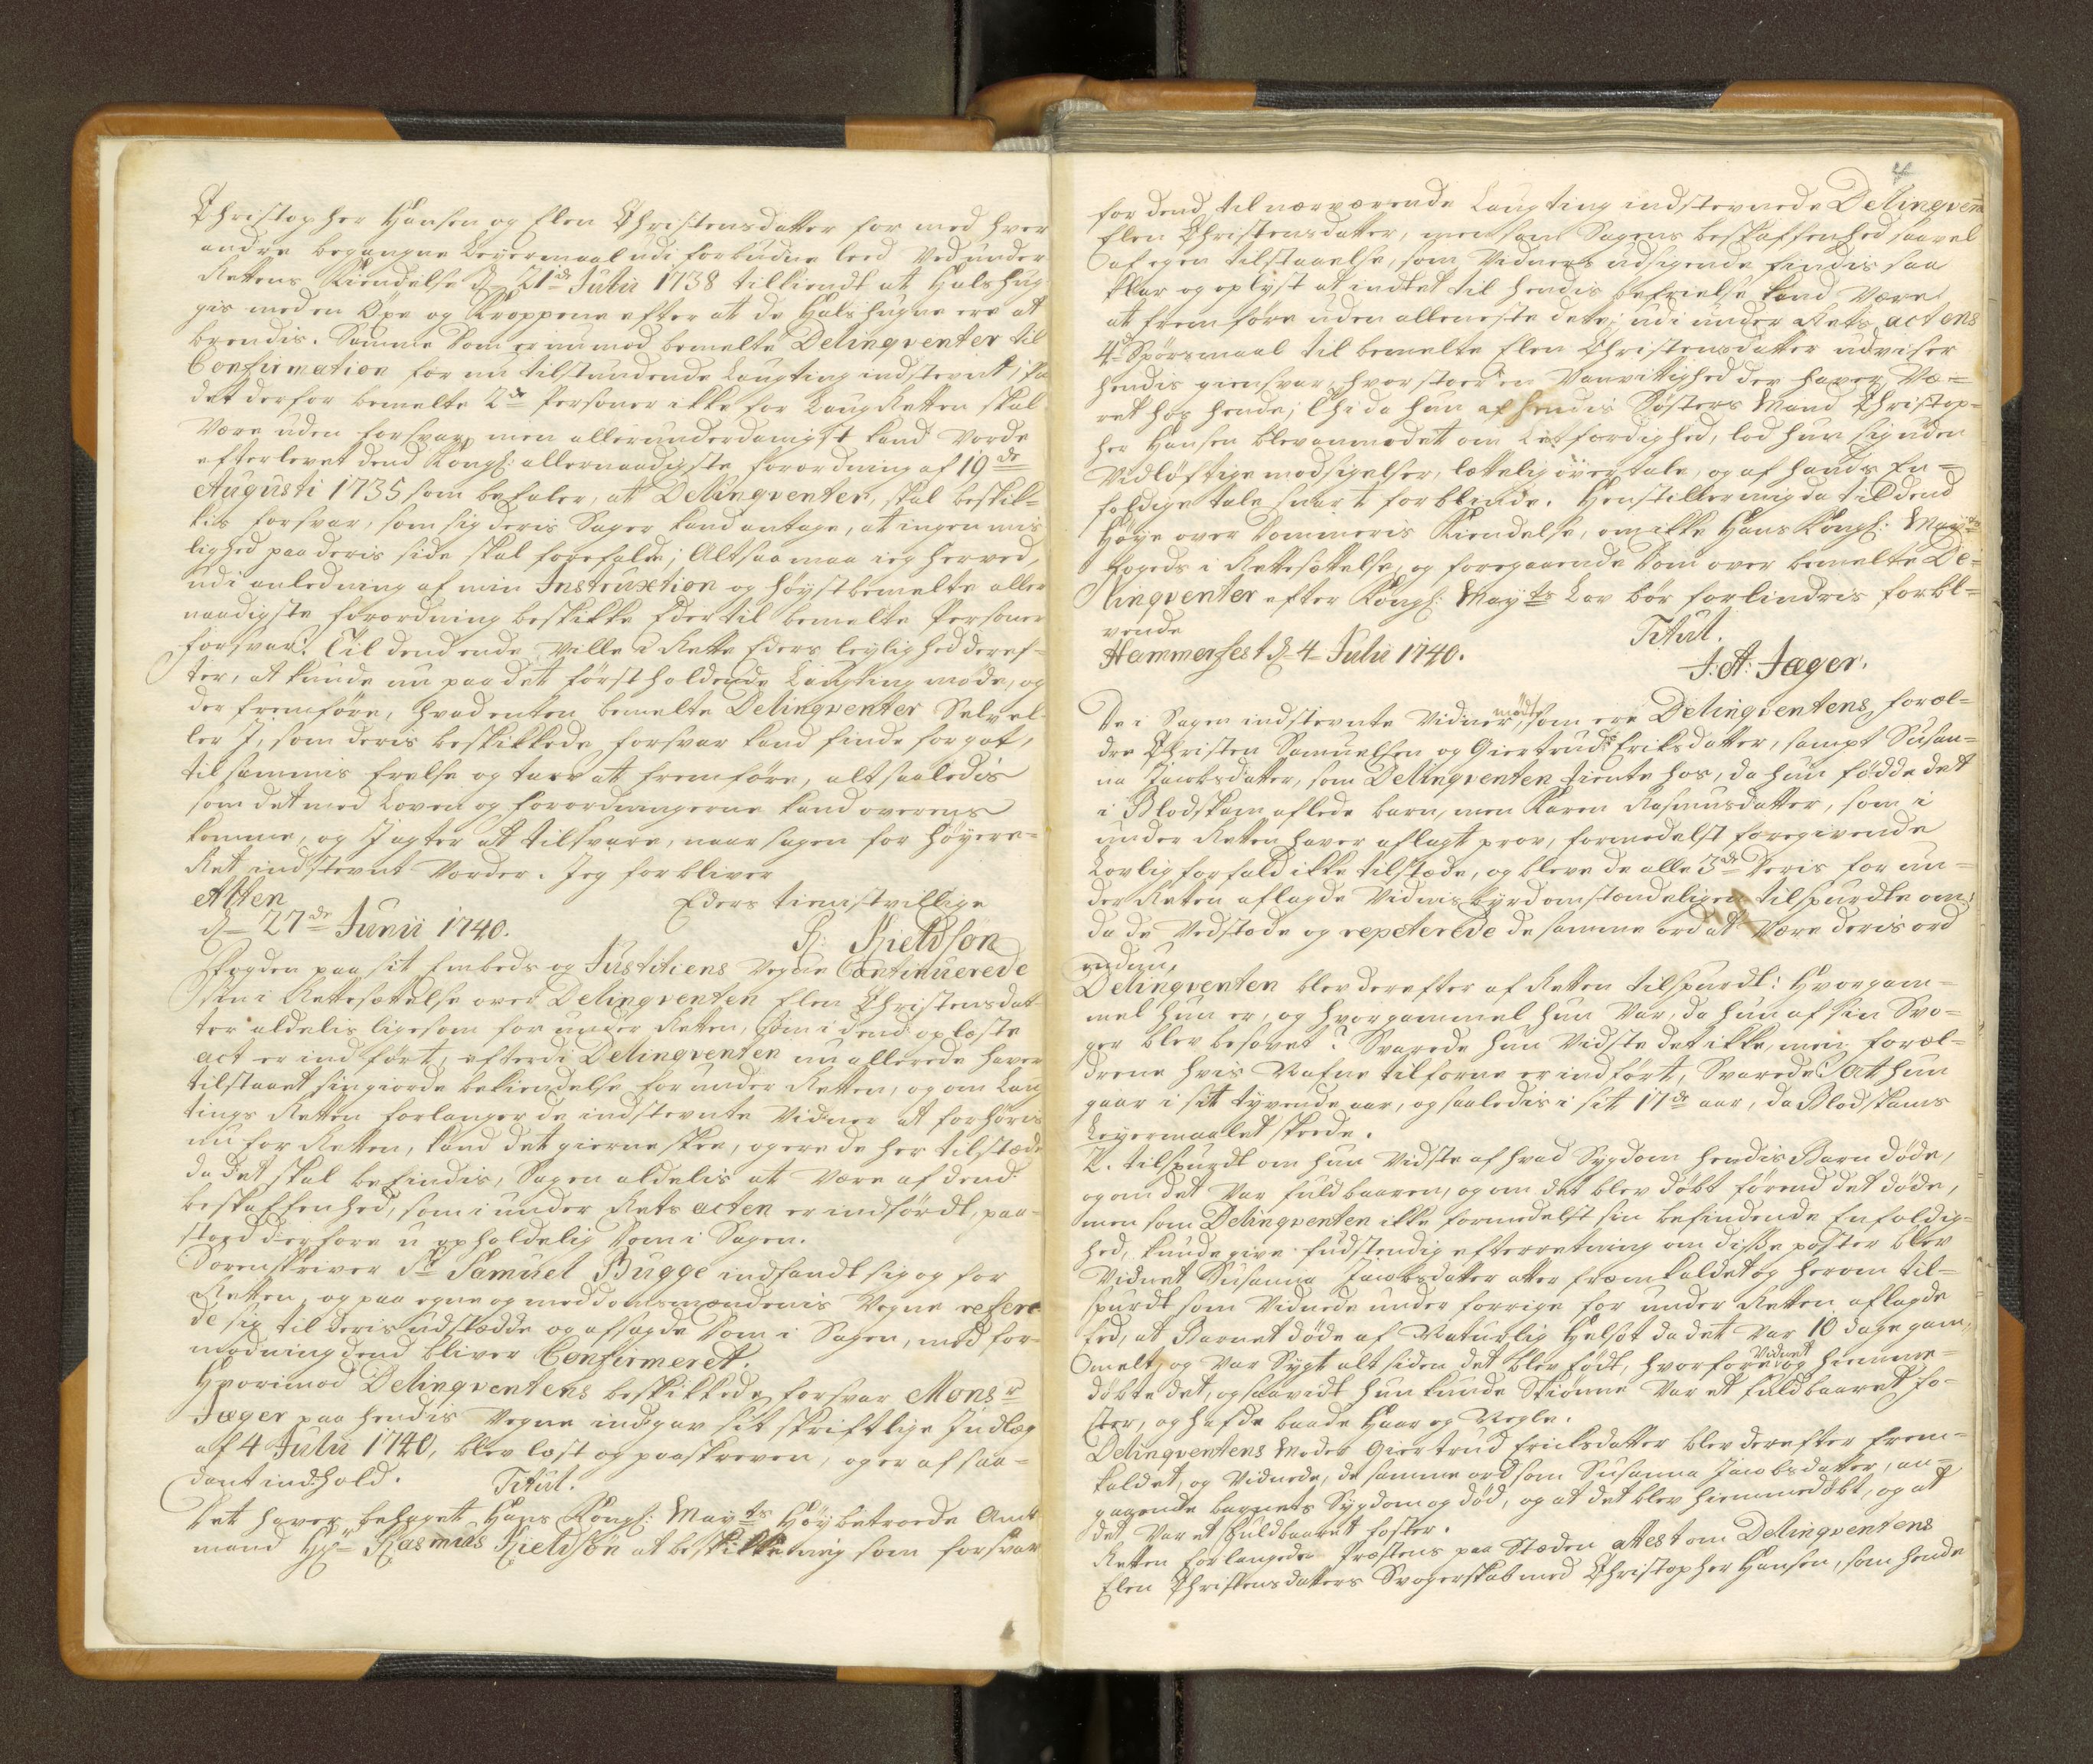 Christopher Hansen og Elen Christensdatter for med hver
andre begangne Leyermaal udi forbudne leed ved under
Rettens Kiendelse d. 21de Julii 1738 tilkiendt at Halshug-
gis med en Öxe og Kroppene efter at de Halshugne ere at
brendis. Samme Dom er nu mod bemelte Delinqventer til
Confirmation for nu tilstundende Laugting indstevnt; Paa
det derfor bemelte 2de Personer ikke for LaugRetten skal
være uden forsvar, men allerunderdanigst kand vorde
efterlevet dend Kongl: allernaadigste forordning af 19de
Augusti 1735 som befaler, at Delinqventer, skal beskik-
kis forsvar, som sig deris Sager kand antage, at ingen mis-
lighed paa deris side skal forefalde; Altsaa maa ieg herved,
udi anledning af min Instruxtion og höystbemelte aller
naadigste forordning beskikke Eder til bemelte Personer
forsvar. Til dend ende ville I Rette Eders leylighed deref-
ter, at kunde nu paa det först holdende Laugting möde, og
der fremföre, hvad enten bemelte Delinqventer Selv el-
ler I, som deris beskikkede forsvar kand finde forgot,
til sammis frelse og tarv at fremföre, alt saaledis
som det med Loven og forordningerne kand overens
komme, og I agter at tilsvare, naar sagen for Höyere-
Ret indstevnt vorder. Jeg forbliver
Alten Eders tienistvillige
d. 27de Junii 1740. R: Kieldsön
Fogden paa sit Embeds og Justitiens vegne Continuerede
sin i Rettesættelse over Delinqventen Elen Christensdat-
ter aldelis ligesom for under Retten, som i dend oplæste
act er indfört, efterdi Delinqventen nu allerede haver
tilstaaet sin giorde bekiendelse for under Retten, og om Laug
tings Retten forlanger de indstevnte Vidner at forhöris
nu for Retten, kand det gierne skee, og ere de her tilstæde
da det skal befindis, Sagen aldelis at være af dend
beskaffenhed, som i under Rets acten er indfördt, paa-
stoed derfore u opholdelig Dom i Sagen.
Sorenskriver Sr Samuel Bugge indfandt sig og for
Retten, og paa egne og meddomsmændenis vegne refere-
de sig til deris udstædde og afsagde Dom i Sagen, med for-
modning dend bliver Confirmeret.
Hvorimod Delinqventens beskikkede forsvar Monsr
Jæger paa hendis vegne indgav sit skriftlige Indlæg
af 4 Julii 1740, blev læst og paaskreven, og er af saa-
dant indhold. Titul.
Det haver behaget Hans Kongl: Mayts Höybetroede Amt
mand Hr. Rasmus Kieldsön at beskikke mig som forsvar
for dend til nærværende Laugting indstevnede Delinqvent
Elen Christensdatter, men som Sagens beskaffenhed saavel
af egen tilstaaelse, som Vidners udsigende findis saa
klar og oplyst at indtet til hendis befrielse kand være
at fremföre uden alleneste dette; udi under Rets actens
4de Spörsmaal til bemelte Elen Christensdatter udviser
hendis giensvar, hvor stoer en Vanvittighed der haver væ-
ret hos hende; Thi da hun af hendis Sösters Mand Christop-
her Hansen blev anmodet om Letfærdighed, lod hun sig uden
vidlöftige modsigelser, lættelig overtale, og af hands En-
foldige tale snart forblinde. Henstiller mig da til dend
Höye over Dommeris Kiendelse, om ikke Hans Kongl: Mayts
fogeds i Rettesættelse, og foregaaende Dom over bemelte De-
linqventer efter Kongl: Mayts Lov bör forlindris forbli-
vende
Titul.
Hammerfest d. 4 Julii 1740.
J. A: Jæger.
De i Sagen indstevnte Vidner, mödte som ere Delinqventens foræl-
dre Christen Samuelsen og Giertrud Eriksdatter, sampt Susan-
na Jacobsdatter, som Delinqventen tiente hos, da hun födde det
i Blodskam aflede barn, men Karen Rasmusdatter, som i
under Retten haver aflagt prov, formedelst foregivende
Lovlig forfald ikke tilstæde, og bleve de alle 3de deris for un-
der Retten aflagde Vidnisbyrd omstændeligen tilspurdte om;
da de vedstode og repeterede de samme ord at være deris ord
endnu,
Delinqventen blev derefter af Retten tilspurdt: Hvor gam-
mel hun er, og hvor gammel hun var, da hun af sin Svo-
ger blev besovet? Svarede hun vidste det ikke, men foræl-
drene hvis Nafne tilforne er indfört, Svarede at hun
gaar i sit tyvende aar, og saaledis i sit 17de aar, da Blodskams
Leyermaalet skeede.
2. tilspurdt om hun vidste af hvad Sygdom hendis Barn döde,
og om det var fuldbaaren, og om det blev döbt förend det döde,
men som Delinqventen ikke formedelst sin befindende Enfoldig-
hed, kunde give fudstendig efterretning om disse poster blev
Vidnet Susanna Jacobsdatter atter fremkaldet og herom til-
spurdt som vidnede under forrige for under Retten aflagde
Eed, at Barnet döde af Naturlig Helsot da det var 10 dage gam-
melt, og var Sygt alt siden det blev födt, hvorfore Vidnet og hiemme-
döbte det, og saavidt hun kunde Skiönne var et fuldbaaret fo-
ster, og hafde baade Haar og Negle.
Delinqventens Moder Giertrud Eriksdatter blev derefter frem-
kaldet, og vidnede, de samme ord som Susanna Jacobsdatter, an-
gaaende barnets Sygdom og död, og at det blev hiemmedöbt, og at
det var et fuldbaaret foster.
Retten forlangede Præstens paa Stæden attest om Delinqventens
Elen Christensdatters Svogerskab med Christopher Hansen, som hende